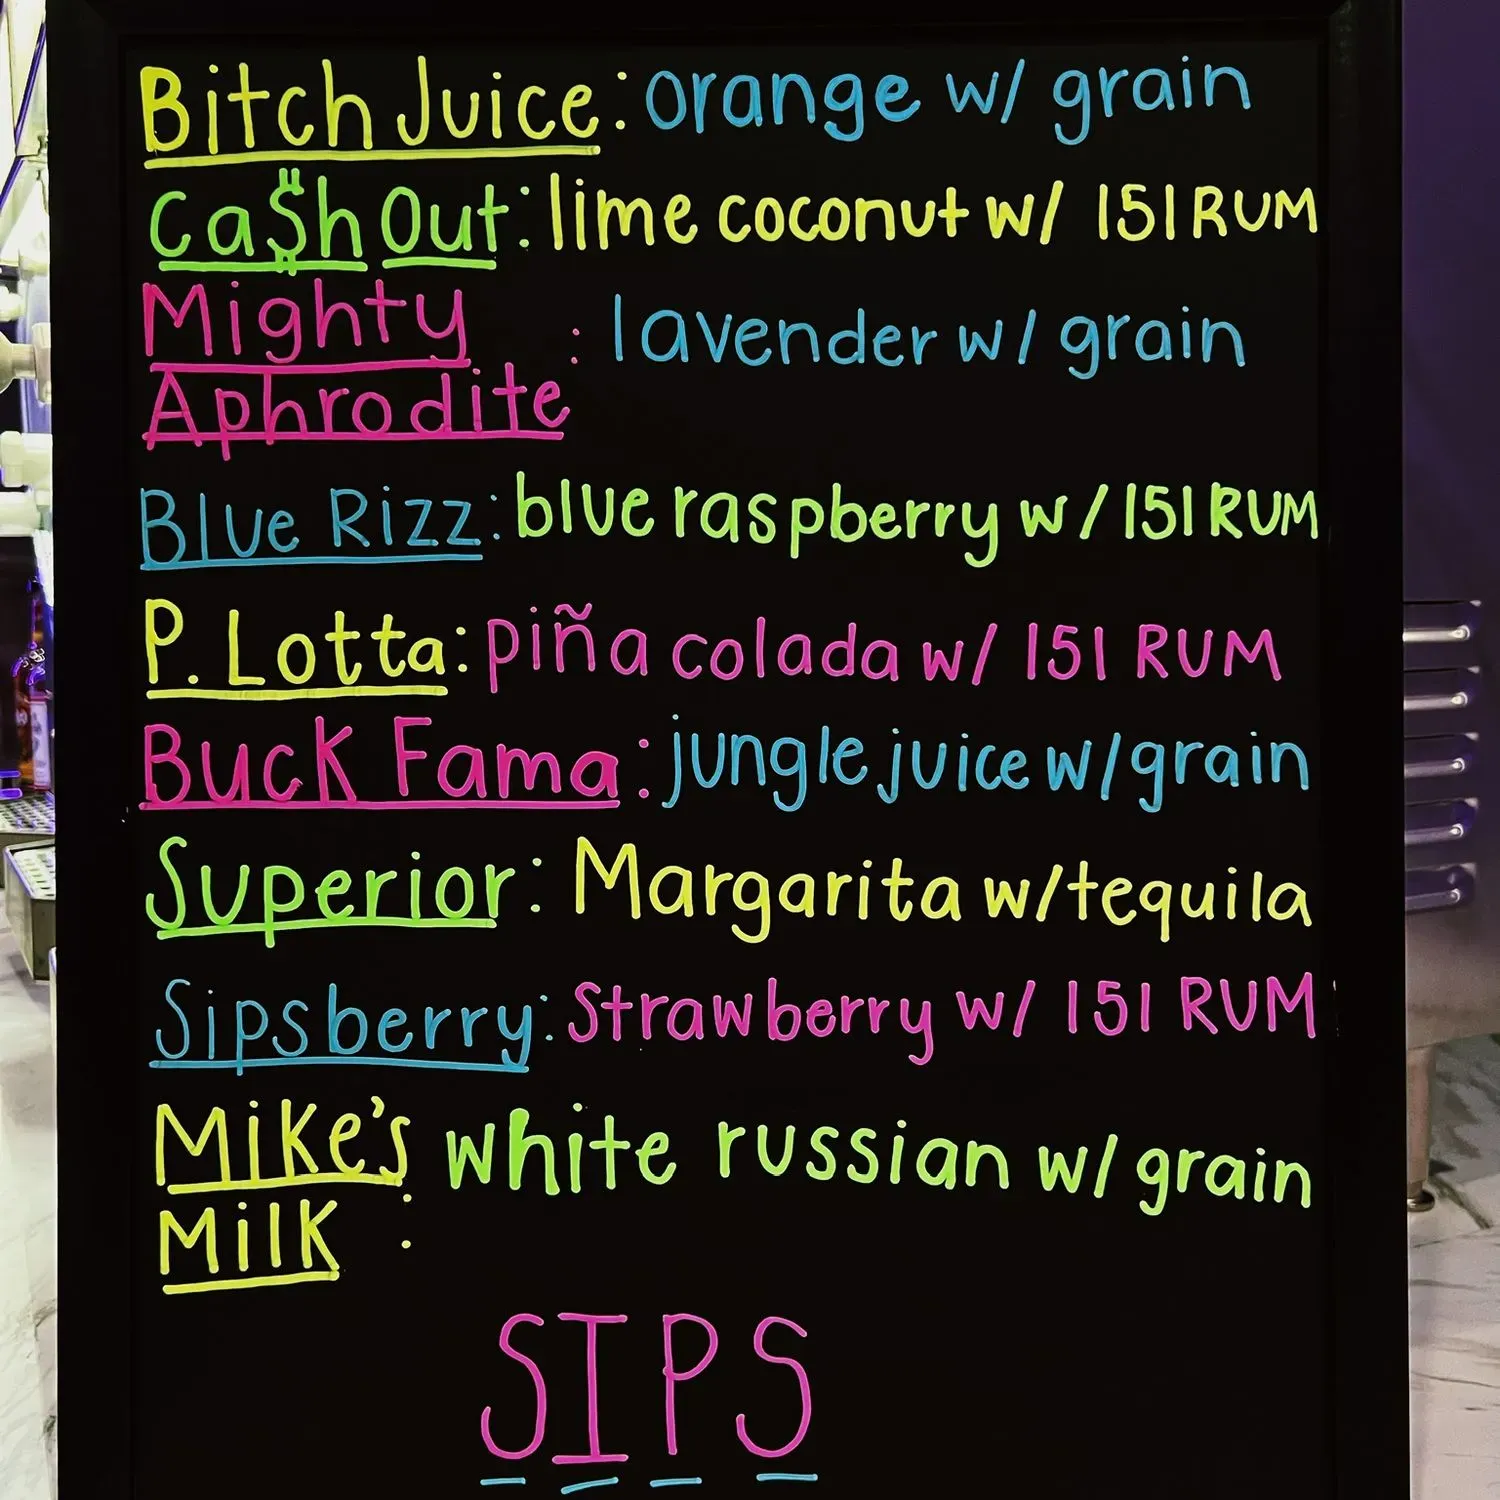 Bitch Juice: orange w/ grain
Ca$h Out: lime coconut w/ 151 RUM
Mighty
Aphrodite : lavender w/ grain
Blue Rizz: blue raspberry w/ 151 RUM
P. Lotta: piña colada w/ 151 RUM
Buck Fama: jungle juice w/ grain
Superior: Margarita w/ tequila
Sipsberry: Strawberry w/ 151 RUM
Mike's white russian w/ grain
Milk :
SIPS